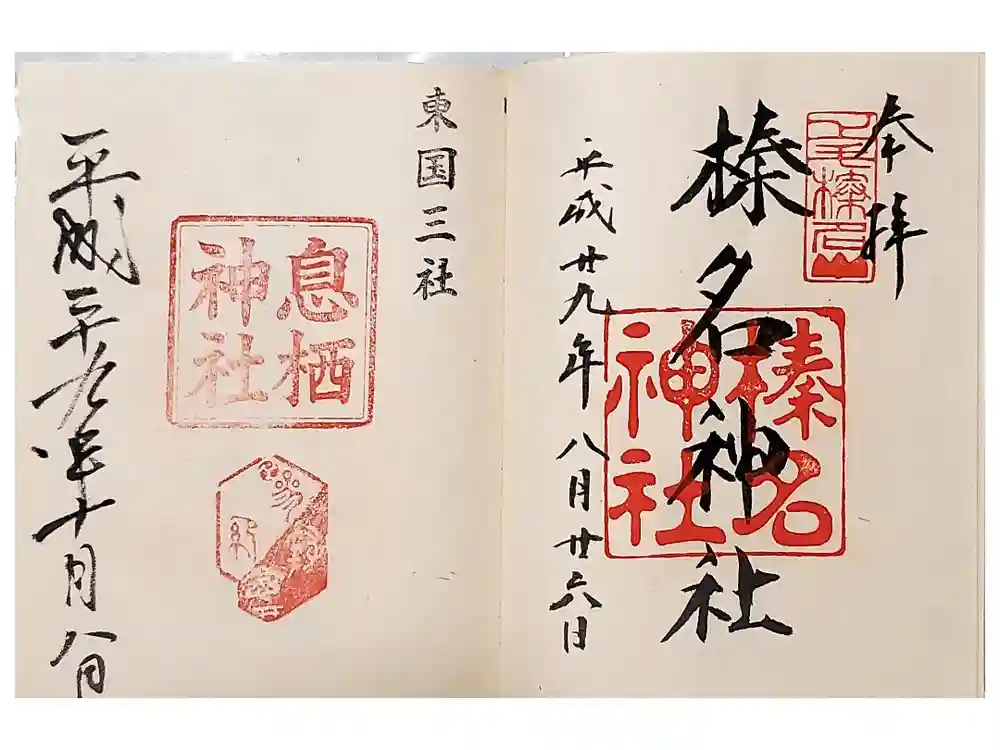 奉拝
榛名神社
榛名
神社
平成廿九年八月廿六日
東国三社
息栖
神社
平成二十九年十月八日